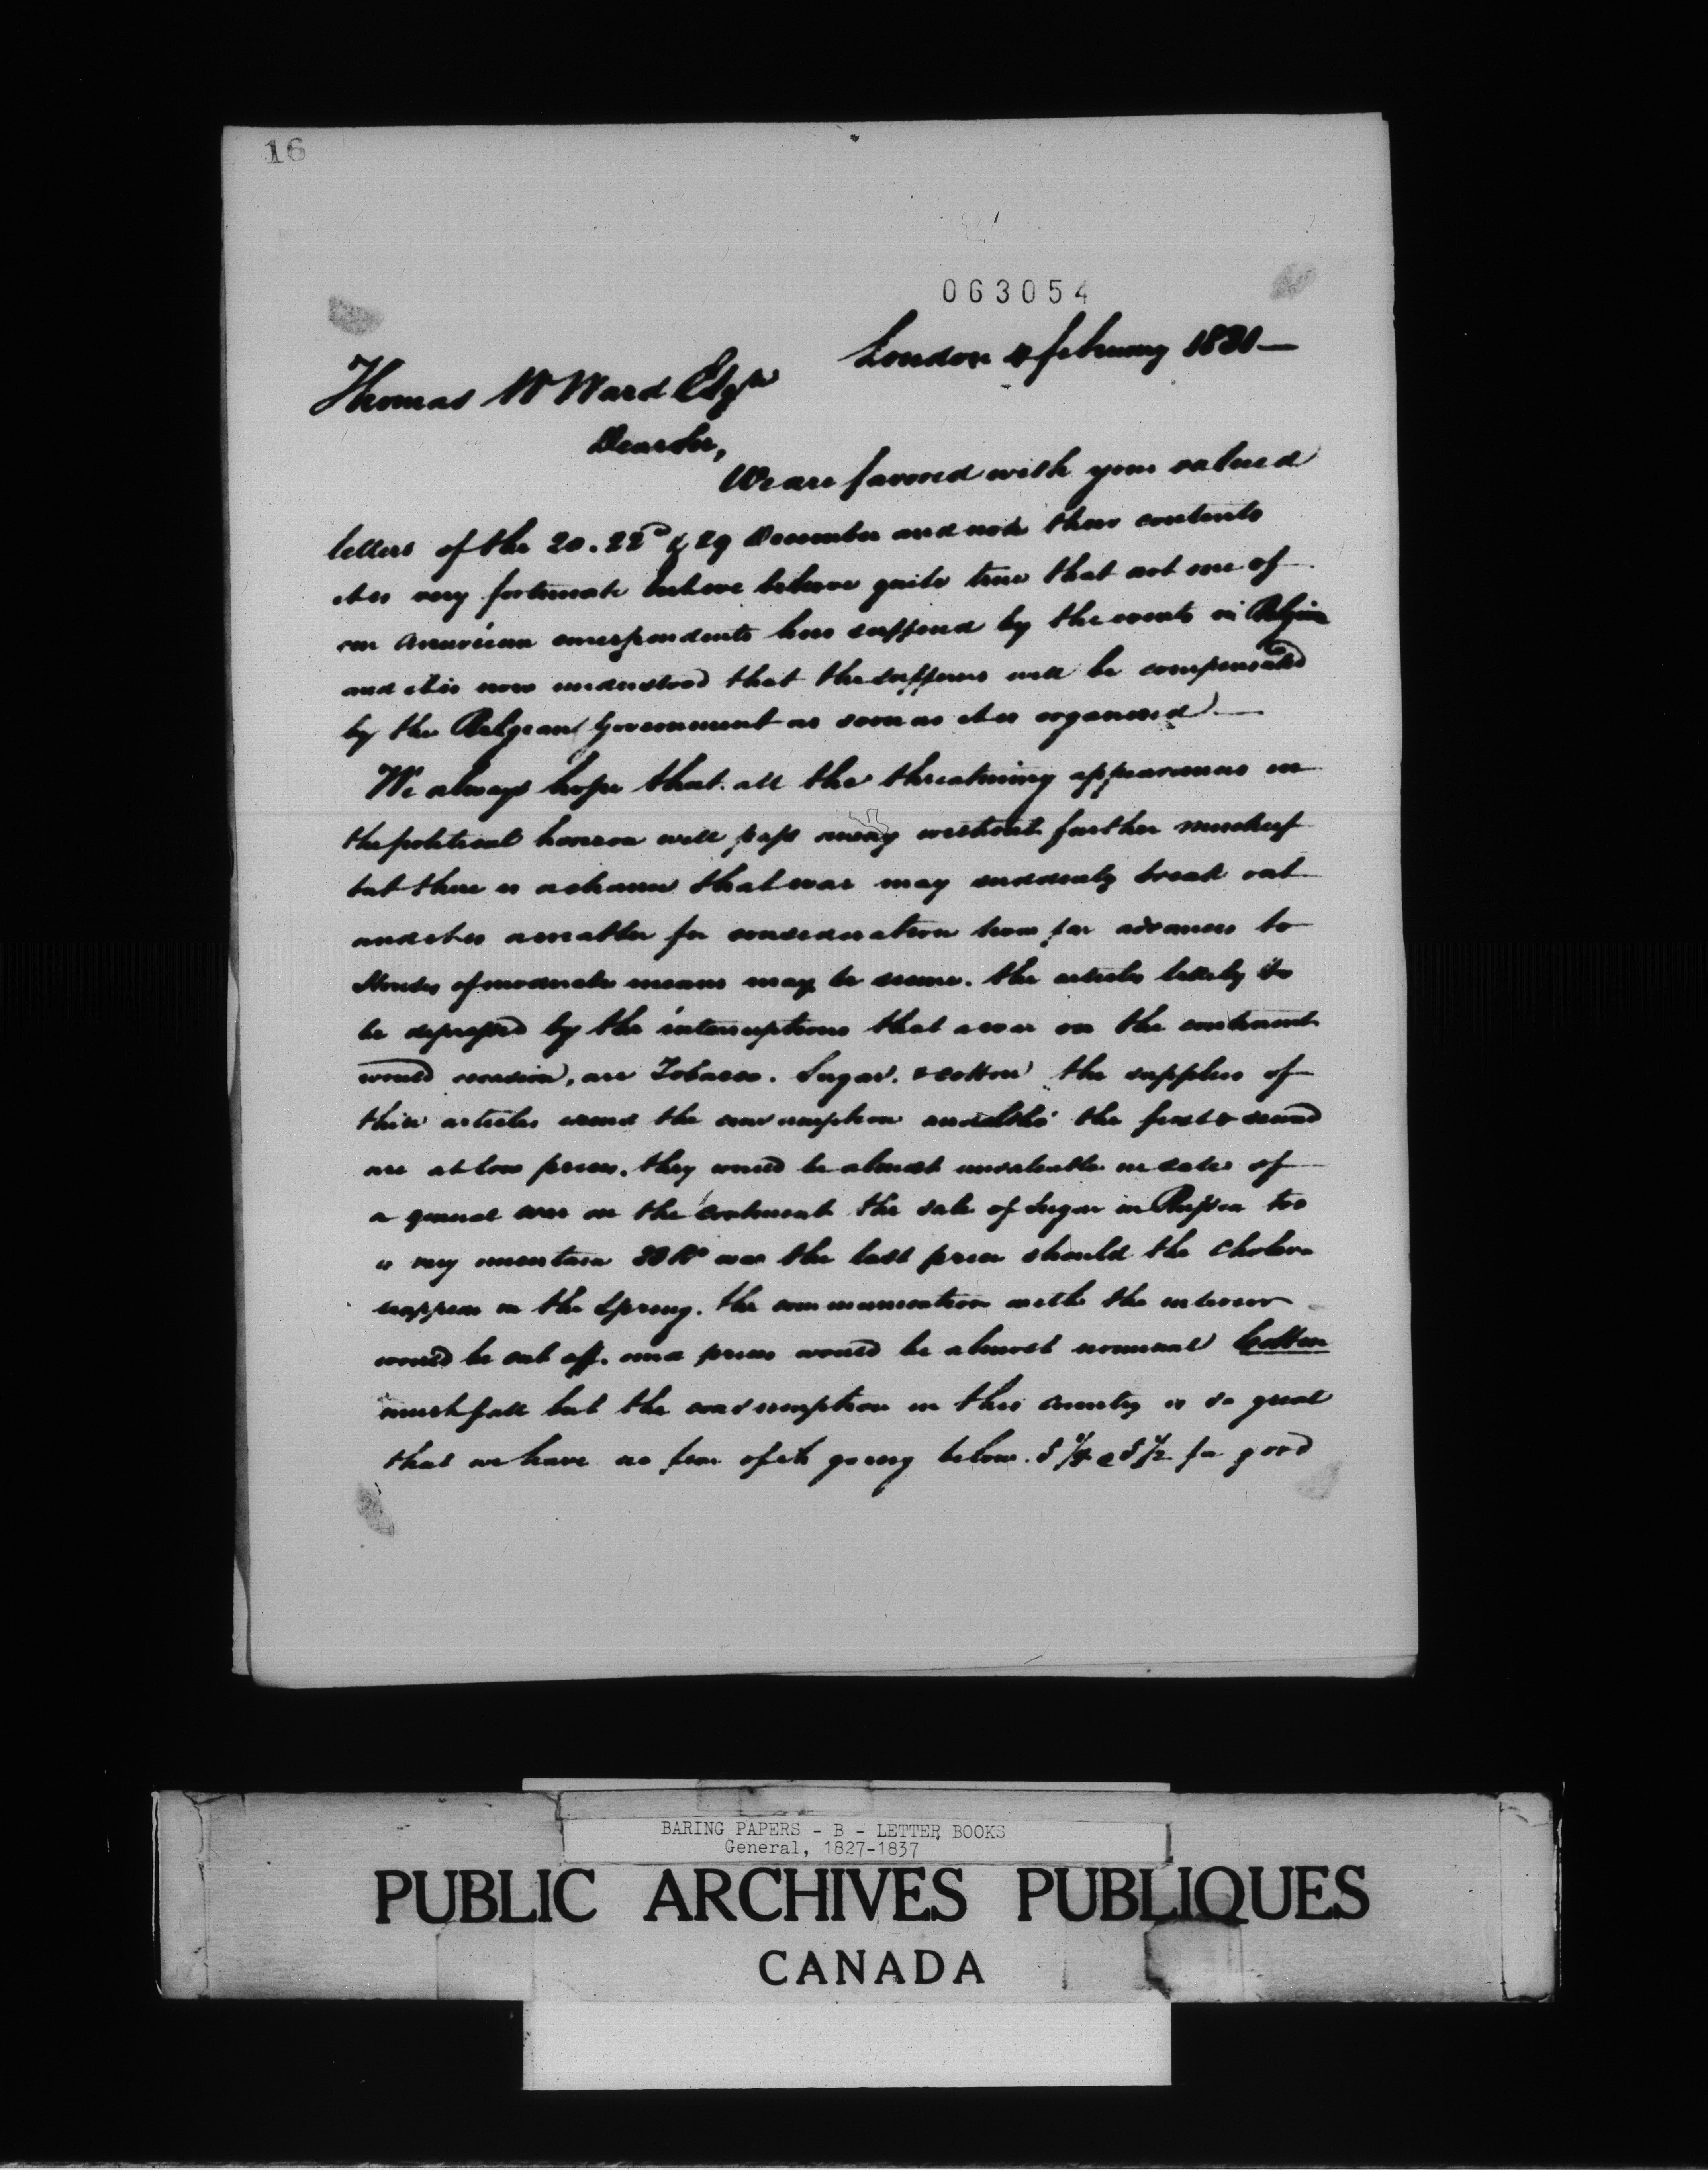 16
063054
London 4 february 1831—
Thomas W Ward Esqre
Dear Sir,
We are favored with your valued
letters of the 20. 22d & 29 December and note their contents
it is very fortunate but we believe quite true that not one of
our American correspondents has suffered by the events in Belgium
and it is now understood that the sufferers will be compensated
by the Belgean Government as soon as it is organised.—
We always hope that all the threatning appearances in
the political horizon will pass away without further mischief
but there is a chance that war may suddenly break out
and it is a matter for consideration how far advances to
Houses of moderate means may be secure. the articles likely to
be depressed by the interruptions that a war on the continent
would occasion, are Tobacco. Sugar. & cotton the supplies of
these articles exceed the consumption and altho' the first & second
are at low prices, they would be almost unsaleable in case of
a general war on the continent the sale of Sugar in Russia too
is very uncertain 30 Ro was the last price should the Cholera
reappear in the Spring. the communication with the interior
would be cut off. and prices would be almost nominal Cotton
must fall but the consumption in this country is so great
that we have no fear of its going below. 5 1/4 @ 5 1/2 for good
BARING PAPERS - B - LETTER BOOKS
General, 1827-1837
PUBLIC ARCHIVES PUBLIQUES
CANADA